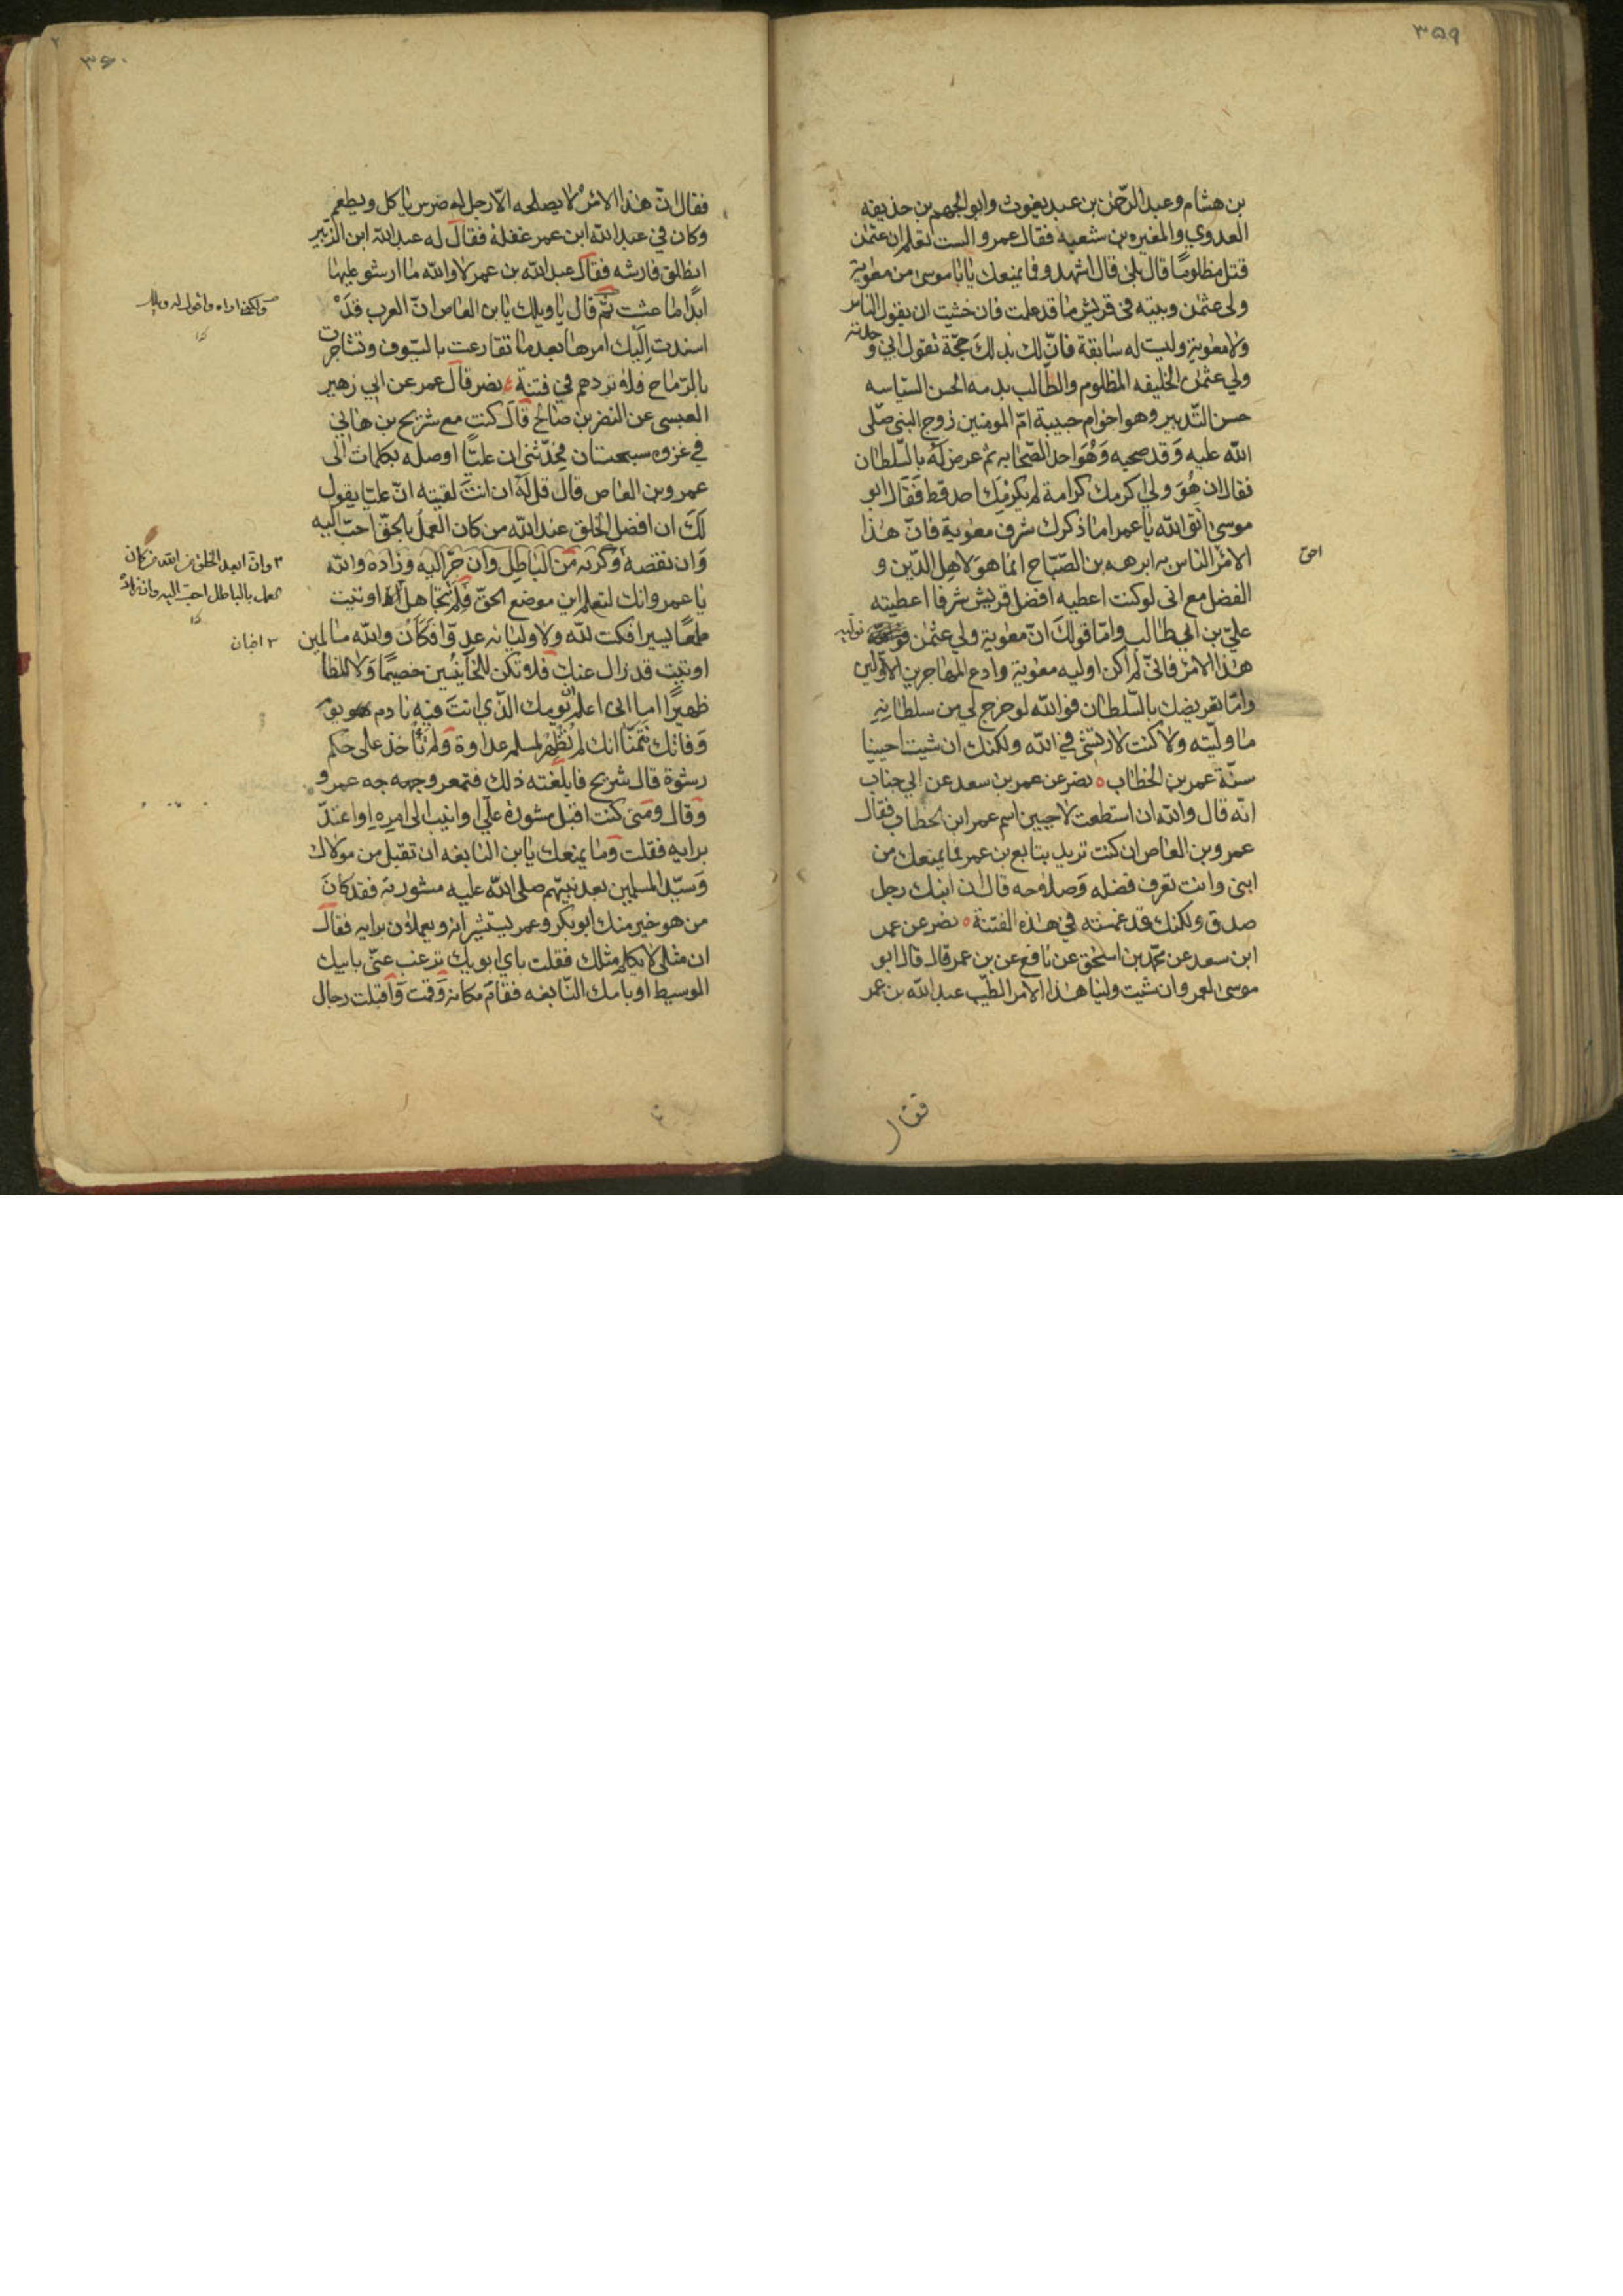 ٣٥٩
بن هشام وعبد الرّحمٰن بن عبد يغوث وابو الجهم بن حذيفه
العدوي والمغيره بن شعبه فقال عمرو الست تعلم ان عثمٰن
قتل مظلومًا قال بلى قال اشهدو فما يمنعك يا ابا موسى من معٰوية
ولى عثمٰن وبيته فى قريش ما قد علمت فان خشيت ان يقول الناس
ولا معٰوية وليست له سابقة فانّ لك بذلك حجّة تقول انى وجدته
ولي عثمٰن الخليفه المظلوم والطّالب بدمه الحسن السّياسه
حسن التّدبير وهو اخو ام حبيبة امّ المومنين زوج النبى صلّى
الله عليه وَقد صحبه وَهُوَ احد الصّحابه ثم عرض لَهُ بالسّلطان
فقال ان هُوَ ولى اكرمك كرامة لم يكرمك احد قط فَقَال ابو
موسى اتّق الله يا عمرو اما ذكرك شرف معٰوية فانّ هٰذا
الامْر الناس به ابرهه بن الصّبّاح انما هوَ لاهل الدّين و
احق
الفضل مع انى لو كنت اعطيه افضل قريش شرفا اعطيته
عليّ بن ابي طالب وامّا قولكَ انّ معٰوية ولي عثمٰن توليه
هٰذا الامْر فانّى لم اكن اوليه معٰوية وادع المهاجرين الاوّلين
وامّا تعريضك بالسّلطان فوالله لو خرج لى من سلطانِهِ
ما ولّيته ولا كنت لارتشى في الله ولكنك ان شيت احيينا
سنّة عمر بن الخطّاب ٥ نصر عن عمر بن سعد عن ابي جناب
انّه قال والله ان استطعت لاحيين اسم عمر ابن الخطاب فقال
عمرو بن العاص ان كنت تريد بتابع بن عمر فما يمنعك من
ابنى وانت تعرف فضله وَصلاحه قال ان ابنك رجل
صدق ولكنك قد غمسته في هٰذه الفتنة ٥ نصر عن عمر
ابن سعد عن محمّد بن اسحٰق عن نافع عن بن عمر قال قال ابو
موسى لعمرو ان شيت ولينا هٰذا الامر الطّيب عبد الله بن عمر
فقال
٣٦٠
فقال انّ هٰذا الامْر لا يصلحه الّا رجل له ضرس ياكل ويطعم
وكان في عبد الله ابن عمر غفلة فقال له عبد الله ابن الزّبير
انطلق فارشه فقال عبد الله بن عمر لا والله ما ارشو عليها
ابدًا ما عشت ثمّ قال يا ويلك يا بن العاص انّ العرب قدْ
اسندت اليك امرها بعد ما تقارعت بالسّيوف وتشاجرت
بالرّماح فلا تردهم في فتنة نصر قال عمر عن ابي زهير
العبسى عن النضر بن صالح قال كنت مع شريح بن هانى
في غزوه سجستان فحدّثنى ان عليًّا اوصله بكلمات الى
عمرو بن العاص قال قل لَهُ ان انتَ لقيته انّ عليّا يقول
لَكَ ان افضل الخلق عند الله من كان العمل بالحقّ احبّ اليه
وَان نقصهُ وَكرثه
٣ وانّ ابعد الخلق من الله من كان
العمل بالباطل احبّ اليه وان زاده
من الباطل وان جرّ اليه وزاده والله
يا عمرو انك لتعلم اين موضع الحقّ فلم تتجاهل اوتيت
طمعًا يسيرا فكنت لله ولاوليائه عدوّا فكانْ والله ما
اوتيت قد زال عنك فلا تكن للخآينين خصيمًا وَلا للظا لمين
ظهيرًا اما انى اعلم انّ يومك الذّي انتَ فيه نادم هو يوم
وَفاتك تتمنّا انك لم تُظهر لمسلم عداوة وَلم تأخذ على حكم
رشوة قال شريح فابلغته ذلك فتمعر وجهه عمرو
وَقال ومتى كنت اقبل مشورة علّى او انيب الى امره او اعتدّ
برايه فقلت وَما يمنعك يا بن النابغه ان تقبل من مولاك
وَسيّد المسلمين بعد نبيّهم صلى الله عليه مشورته فقد كانَ
من هو خير منك ابو بكر وعمر يستشيرانه ويعملان برايه فقال
ان مثلى لا يكلم مثلك فقلت باي ابويك ترغب عنّى بابيك
الوسيط او بامك النّابغه فقامَ مكانه وَقمت وَاقبلت رجال